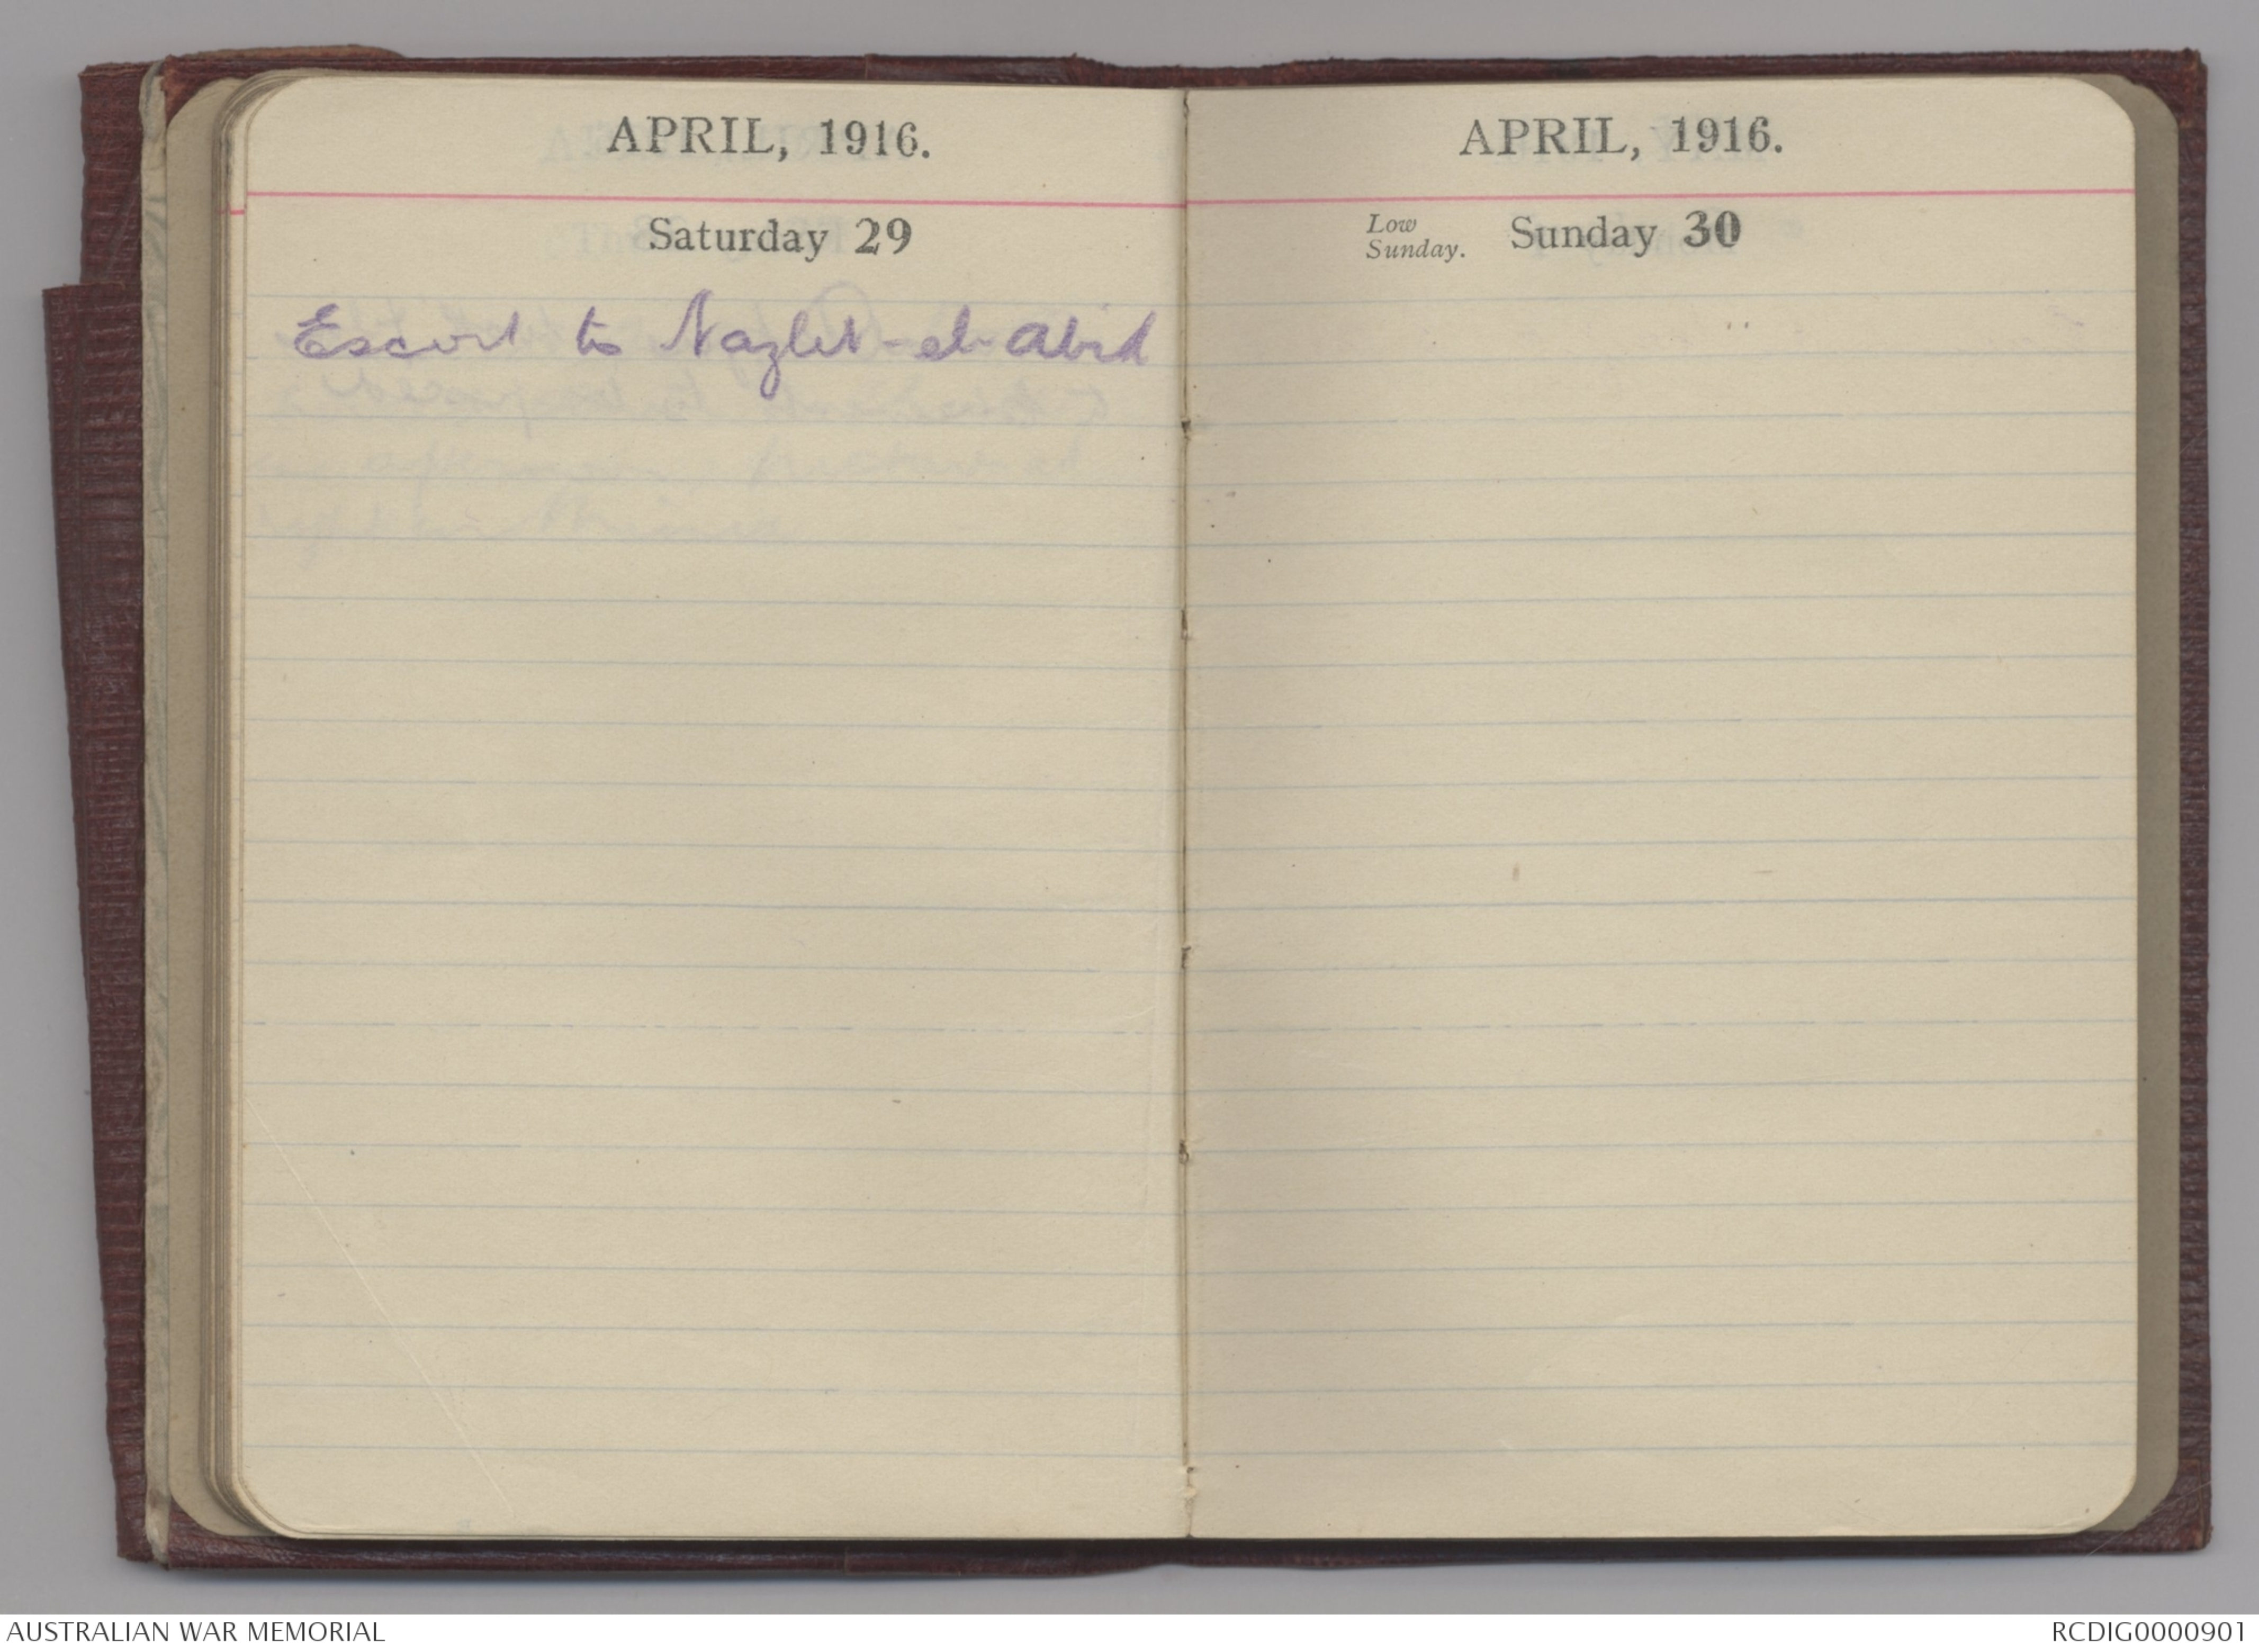 APRIL, 1916.
Saturday 29
Escort to Nazlet-el-Abid
APRIL, 1916.
Low
Sunday.
Sunday 30
AUSTRALIAN WAR MEMORIAL
RCDIG0000901